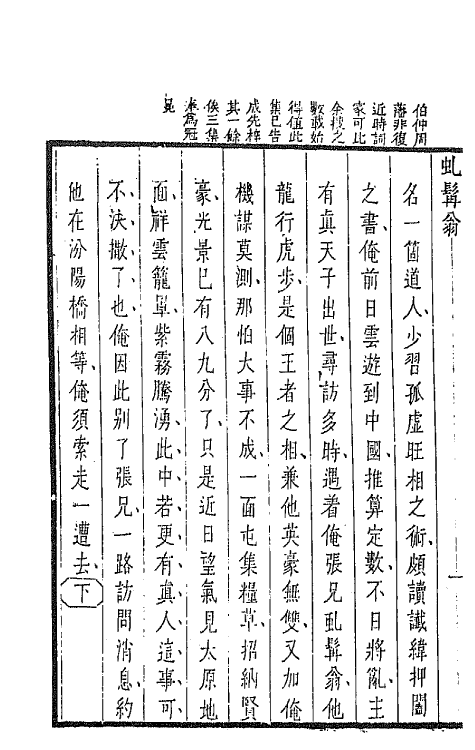 伯仲周
藩非復
近時詞
家可比
余搜之
數載始
得值此
集已告
成先梓
其一餘
俟三集
奉爲冠
冕
虬髯翁
名一箇道人少習孤虛旺相之術頗讀讖緯押闔
之書俺前日雲遊到中國推算定數不日將亂主
有眞天子出世尋訪多時遇着俺張兄虬髯翁他
龍行虎步是個王者之相兼他英豪無雙又加俺
機謀莫測那怕大事不成一面屯集糧草招納賢
豪光景已有八九分了只是近日望氣見太原地
面祥雲籠罩紫霧騰湧此中若更有眞人這事可
不決撒了也俺因此别了張兄一路訪問消息約
他在汾陽橋相等俺須索走一遭去下